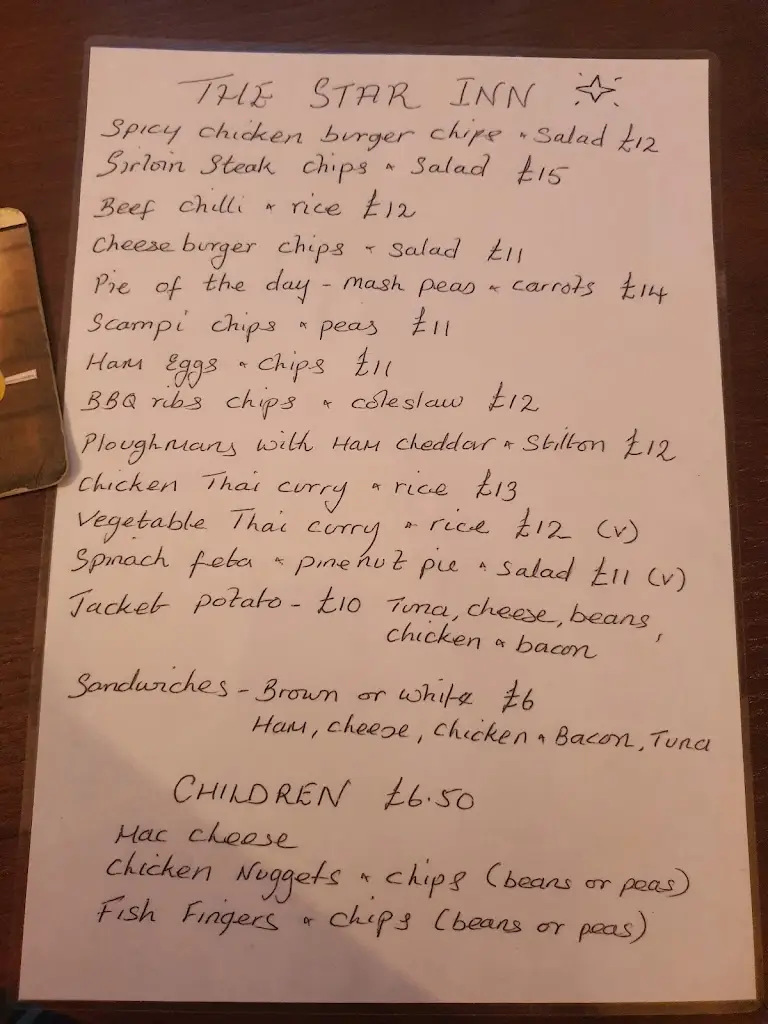 THE STAR INN
Spicy chicken burger chips & Salad £12
Sirloin Steak chips & Salad £15
Beef chilli & rice £12
Cheese burger chips & salad £11
Pie of the day - mash peas & carrots £14
Scampi chips & peas £11
Ham Eggs & chips £11
BBQ ribs chips & coleslaw £12
Ploughmans with Ham cheddar & Stilton £12
Chicken Thai curry & rice £13
Vegetable Thai curry & rice £12 (v)
Spinach feta & pine nut pie & salad £11 (v)
Jacket potato - £10 Tuna, cheese, beans,
chicken & bacon
Sandwiches - Brown or white £6
Ham, cheese, chicken & Bacon, Tuna
CHILDREN £6.50
Mac cheese
Chicken Nuggets & chips (beans or peas)
Fish Fingers & chips (beans or peas)